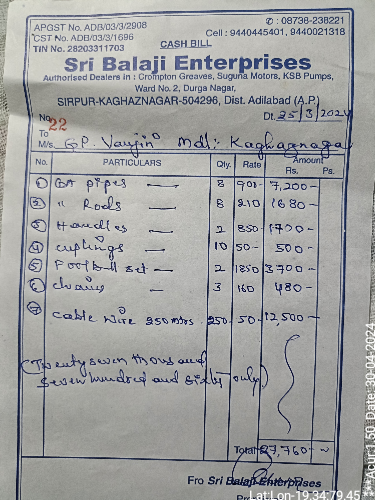 APGST No. ADB/03/3/2908
CST No. ADB/03/3/1696
TIN No. 28203311703
✆ : 08738-238221
Cell : 9440445401, 9440021318
CASH BILL
Sri Balaji Enterprises
Authorised Dealers in : Crompton Greaves, Suguna Motors, KSB Pumps,
Ward No. 2, Durga Nagar,
SIRPUR-KAGHAZNAGAR-504296, Dist. Adilabad (A.P.)
No. 22
Dt. 25/3/2024
To
M/s G.P. Vanjiri Mdl: Kaghaznagar
No. PARTICULARS Qty. Rate Amount
Rs. Ps.
1 pipes 8 900- 7,200-
2 " Rods 8 210 1680-
3 Handles 2 850- 1700-
4 cuplings 10 50- 500-
5 Foot ball set 2 1850 3700-
6 chains 3 160 480-
7 cable wire 250 mtrs 250 50- 12,500-
(Twenty seven thousand
seven hundred and sixty only)
Total 27,760-
Fro Sri Balaji Enterprises
Lat:Lon-19.34:79.45***Acur:1.50 Date:30-04-2024